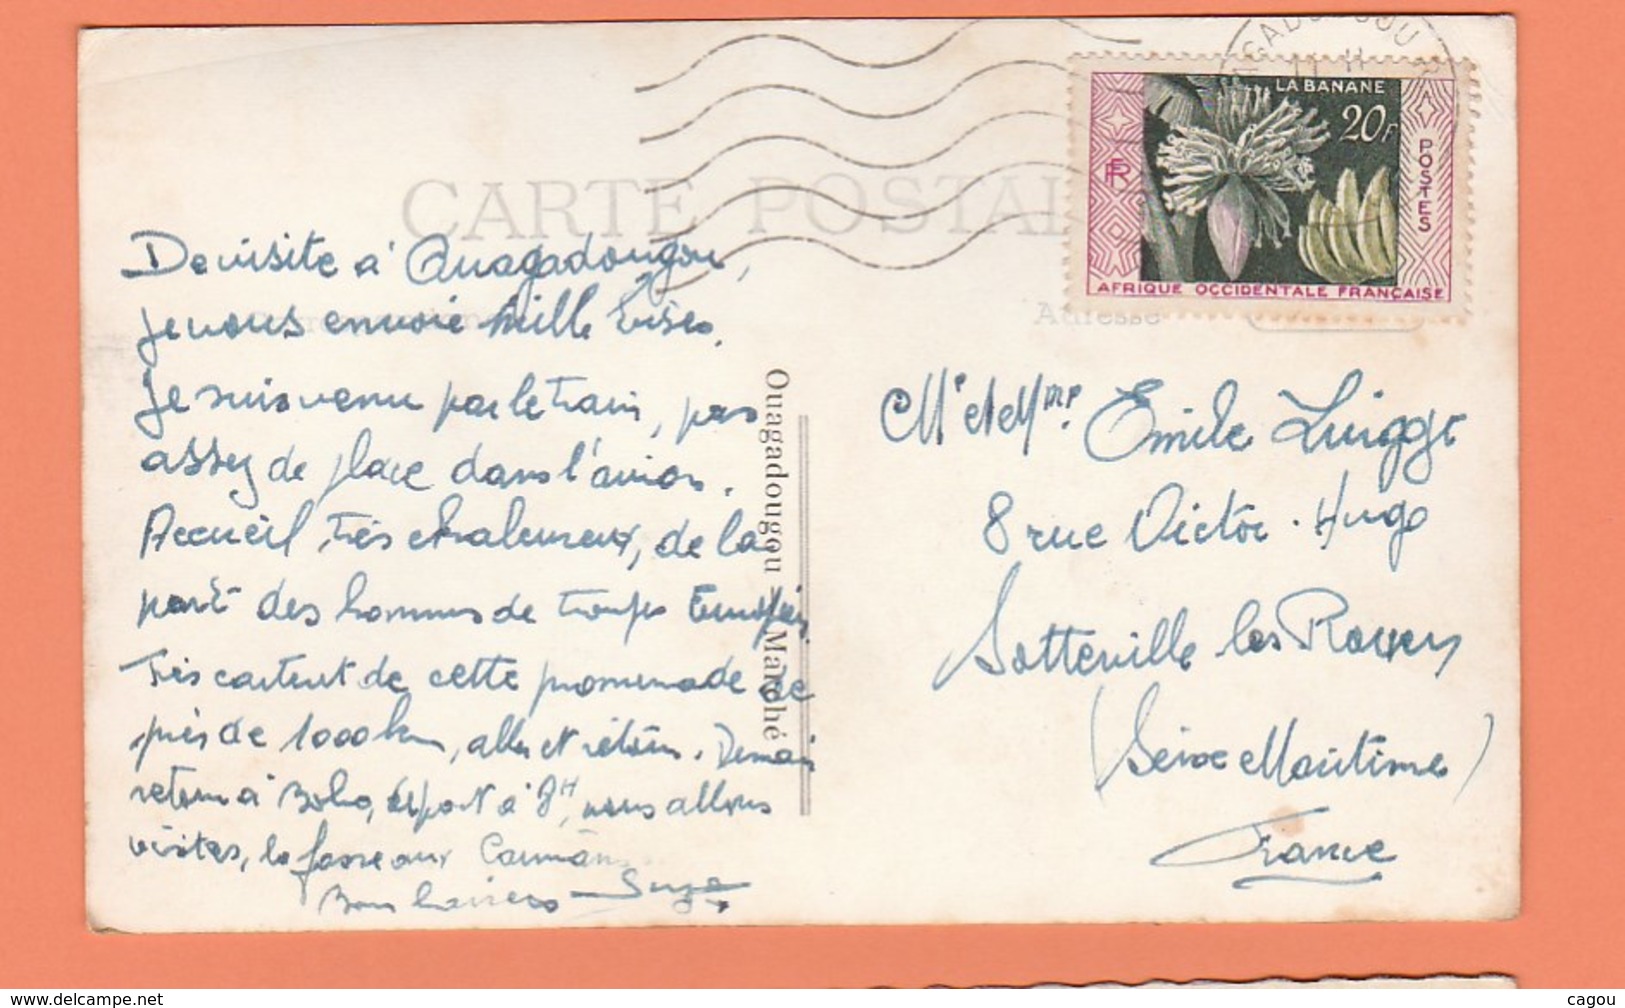 CARTE POSTALE
LA BANANE
20F
RF
POSTES
AFRIQUE OCCIDENTALE FRANÇAISE
Adresse
Ouagadougou - Marché
De visite à Ouagadougou,
je vous envoie mille bises.
Je suis venu par le train, pas
assez de place dans l'avion.
Accueil très chaleureux, de la
part des hommes de troupe
Très content de cette promenade de
près de 1000 km, aller et retour. Demain
retour à Bobo, départ à 8H, nous allons
visiter, la fosse aux Caïmans
Bons baisers Serge
Mr et Mme Emile Luiggi
8 rue Victor Hugo
Sotteville les Rouen
(Seine Maritime)
France
delcampe.net
cagou